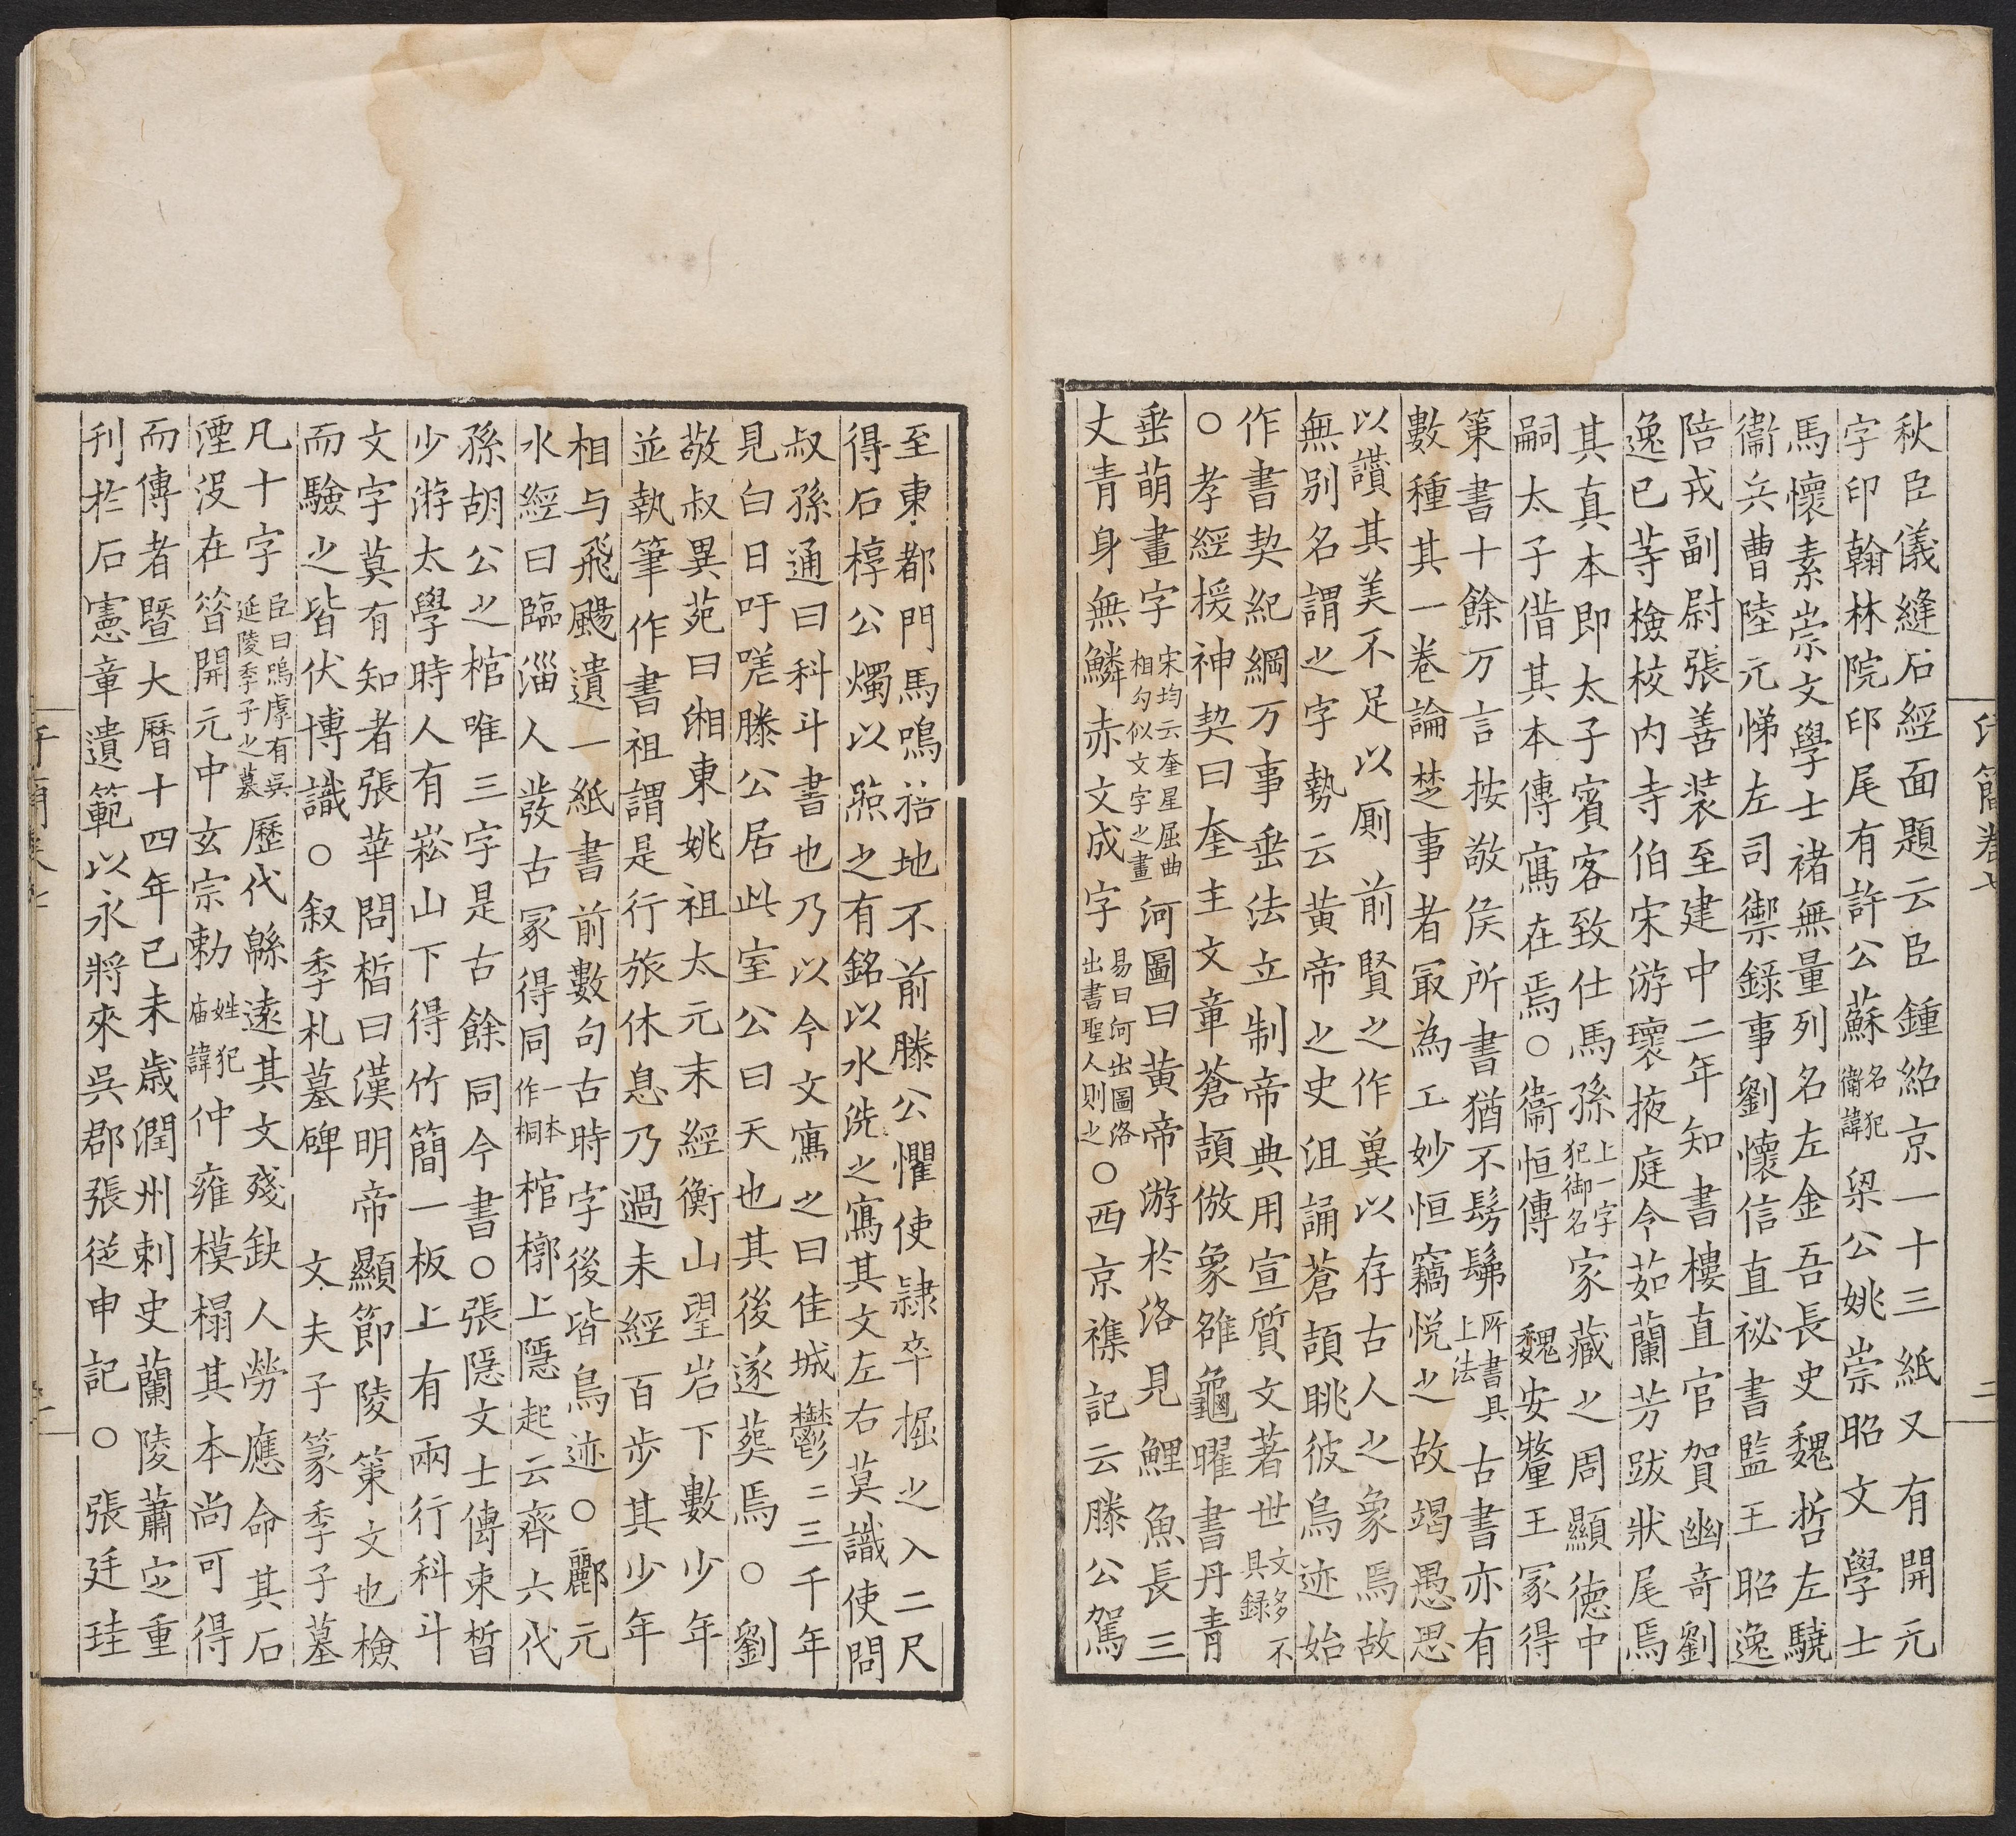 秋臣儀縫石經面題云臣鍾紹京一十三紙又有開元
字印翰林院印尾有許公蘇名犯衛諱梁公姚崇昭文學士
馬懷素崇文學士褚無量列名左金吾長史魏哲左驍
衞兵曹陸元悌左司禦錄事劉懷信直祕書監王昭逸
陪戎副尉張善裝至建中二年知書樓直官賀幽奇劉
逸已等檢校内寺伯宋游瓌掖庭令茹蘭芳跋狀尾焉
其真本即太子賓客致仕馬孫上一字犯御名家藏之周顯徳中
嗣太子借其本傳寫在焉○衞恒傳魏安釐王冢得
策書十餘万言按敬侯所書猶不髣髴所書具上法古書亦有
數種其一卷論楚事者最為工妙恒竊悦之故竭愚思
以讃其美不足以厠前賢之作冀以存古人之象焉故
無别名謂之字勢云黄帝之史沮誦蒼頡眺彼鳥迹始
作書契紀綱万事垂法立制帝典用宣質文著世文多不具録
○孝經援神契曰奎主文章蒼頡倣象雒龜曜書丹青
垂萌畫字宋均云奎星屈曲相勾似文字之畫河圖曰黄帝游於洛見鯉魚長三
丈青身無鱗赤文成字易曰河出圖洛出書聖人則之○西京襍記云滕公駕
印簡卷七
二
至東都門馬鳴跼地不前滕公懼使隷卒掘之入二尺
得石椁公燭以照之有銘以水洗之寫其文左右莫識使問
叔孫通曰科斗書也乃以今文寫之曰佳城鬱二三千年
見白日吁嗟滕公居此室公曰天也其後遂葬焉○劉
敬叔異苑曰湘東姚祖太元末經衡山望岩下數少年
並執筆作書祖謂是行旅休息乃過未經百歩其少年
相与飛颺遺一紙書前數句古時字後皆鳥迹○酈元
水經曰臨淄人發古冢得同一本作桐棺槨上隱起云齊六代
孫胡公之棺唯三字是古餘同今書○張隱文士傳束晳
少游太學時人有崧山下得竹簡一板上有兩行科斗
文字莫有知者張華問晳曰漢明帝顯節陵策文也檢
而驗之皆伏博識○叙季札墓碑　文夫子篆季子墓
凡十字臣曰嗚虖有吳延陵季子之墓歷代緜遠其文殘缺人勞應命其石
湮没在昝開元中玄宗勅姓犯庙諱仲雍模榻其本尚可得
而傳者暨大曆十四年己未歳潤州刺史蘭陵蕭定重
刋扵石憲章遺範以永將來吳郡張從申記○張廷珪